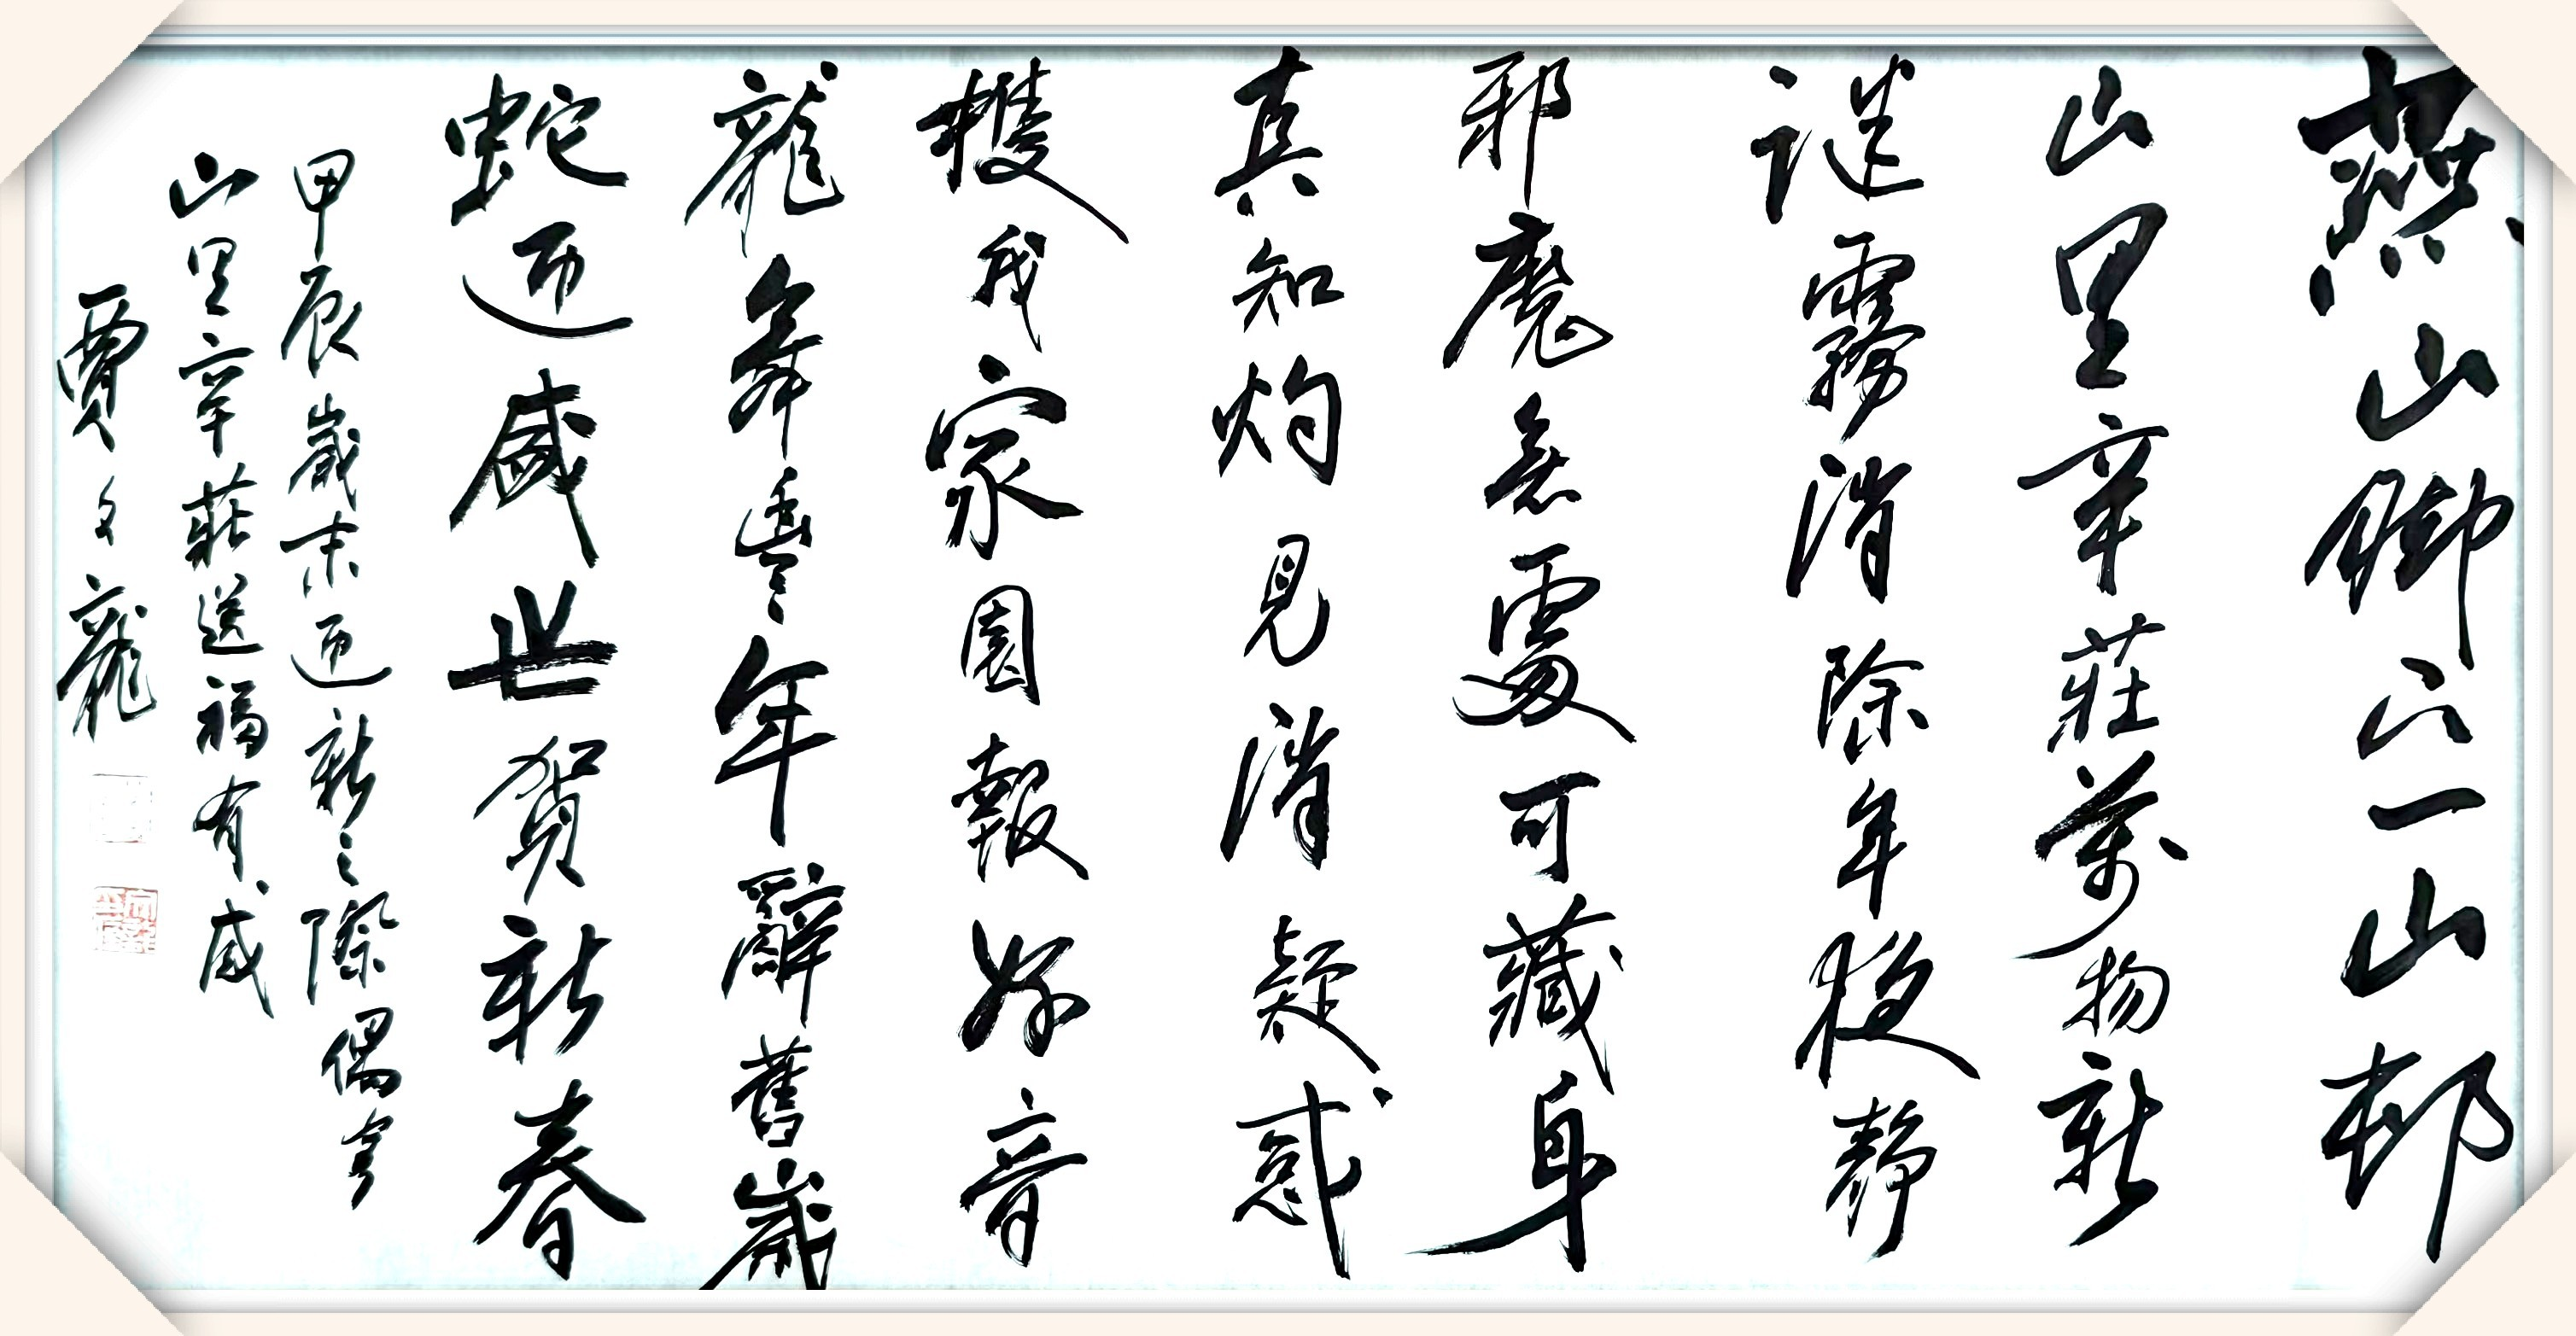 燕山脚下一山邨
山里辛莊萬物新
謎霧消除年夜靜
邪魔無處可藏身
真知灼見消疑惑
護我家園報好音
龍舞豐年辭舊歲
蛇迎盛世賀新春
甲辰歲末迎新之際偶字
山里辛莊送福有感
賈文龍